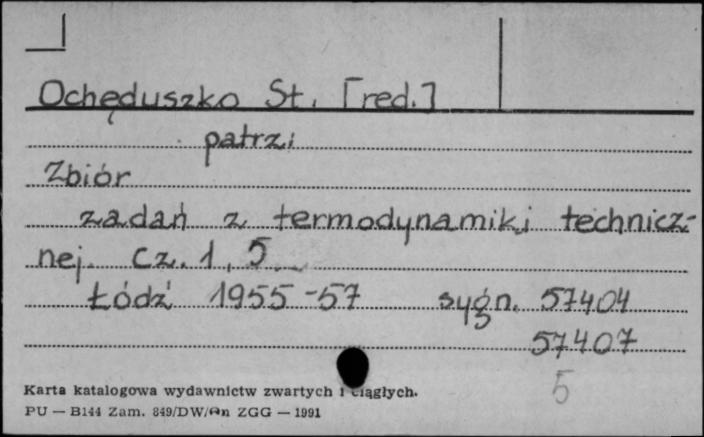 Ochęduszko St. [red.]
patrzi
Zbiór
zadań z termodynamiki technicz-
nej. Cz. 1, 5
Łódź 1955-57 sygn. 57404
57407
5
Karta katalogowa wydawnictw zwartych i ciągłych.
PU — B144 Zam. 849/DW/ ZGG — 1991